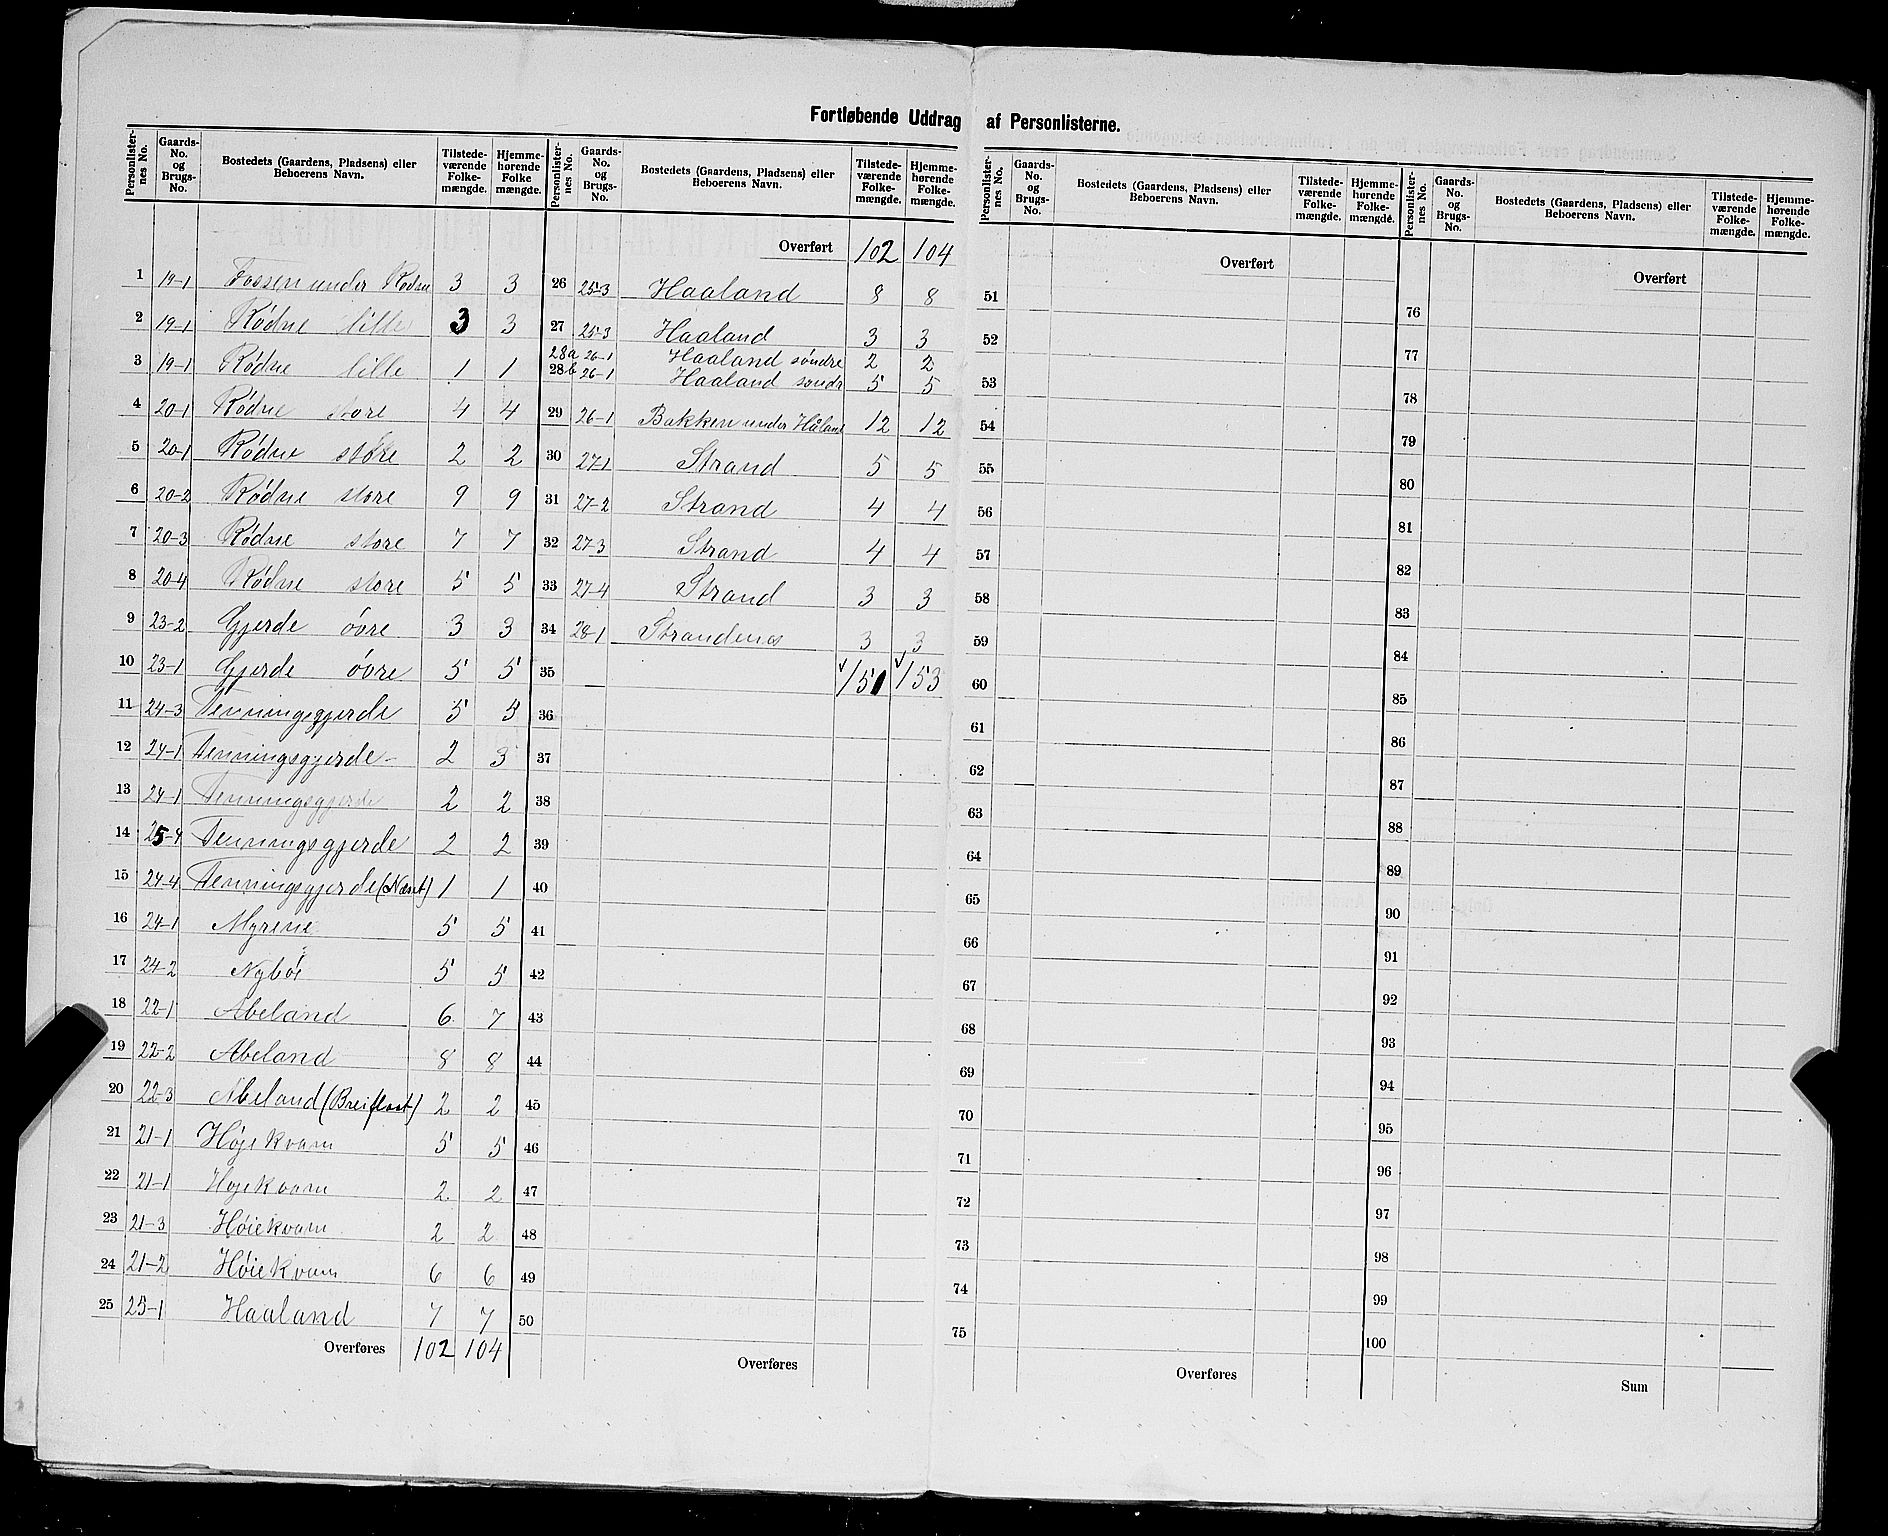 Fortløbende Uddrag af Personlisterne.
Personlister-nes No. Gaards-No. og Brugs-No. Bostedets (Gaardens, Pladsens) eller Beboerens Navn. Tilstede-værende Folke-mængde. Hjemme-hørende Folke mængde.
1 19-1 Fossen under Rødne 3 3
2 19-1 Rødne lille 3 3
3 19-1 Rødne lille 1 1
4 20-1 Rødne store 4 4
5 20-1 Rødne store 2 2
6 20-2 Rødne store 9 9
7 20-3 Rødne store 7 7
8 20-4 Rødne store 5 5
9 23-2 Gjerde óvre 3 3
10 23-1 Gjerde óvre 5 5
11 24-3 Tenningsgjerde 5 5
12 24-1 Tenningsgjerde 2 3
13 24-1 Tenningsgjerde 2 2
14 25-4 Tenningsgjerde 2 2
15 24-4 Tenningsgjerde (Næset) 1 1
16 24-1 Myrene 5 5
17 24-2 Nybói 5 5
18 22-1 Abeland 6 7
19 22-2 Abeland 8 8
20 22-3 Abeland (Breiflaat) 2 2
21 21-1 Höjekvam 5 5
22 21-1 Højekvam 2 2
23 21-3 Høiekvam 2 2
24 21-2 Høiekvam 6 6
25 25-1 Haaland 7 7
Overføres 102 104
Personlister-nes No. Gaards-No. og Brugs-No. Bostedets (Gaardens, Pladsens) eller Beboerens Navn. Tilstede-værende Folke-mængde. Hjemme-hørende Folke-mængde.
Overført 102 104
26 25-3 Haaland 8 8
27 25-3 Haaland 3 3
28a 26-1 Haaland søndre 2 2
28b 26-1 Haaland søndr 5 5
29 26-1 Bakken under Håland 12 12
30 27-1 Strand 5 5
31 27-2 Strand 4 4
32 27-3 Strand 4 4
33 27-4 Strand 3 3
34 28-1 Strandenes 3 3
35 151 153
36
37
38
39
40
41
42
43
44
45
46
47
48
49
50
Overføres
Personlister-nes No. Gaards-No. og Brugs-No. Bostedets (Gaardens, Pladsens) eller Beboerens Navn. Tilstede-værende Folke-mængde. Hjemme-hørende Folke-mængde.
Overført
51
52
53
54
55
56
57
58
59
60
61
62
63
64
65
66
67
68
69
70
71
72
73
74
75
Overføres
Personlister-nes No. Gaards-No. og Brugs-No. Bostedets (Gaardens, Pladsens) eller Beboerens Navn. Tilstede-værende Folke-mængde. Hjemme-hørende Folke-mængde.
Overført
76
77
78
79
80
81
82
83
84
85
86
87
88
89
90
91
92
93
94
95
96
97
98
99
100
Sum